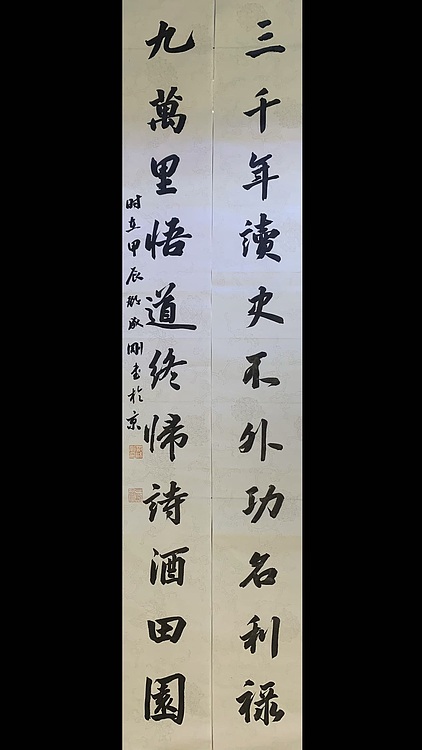 三千年讀史不外功名利祿
九萬里悟道終歸詩酒田園
时在甲辰 剛書於京